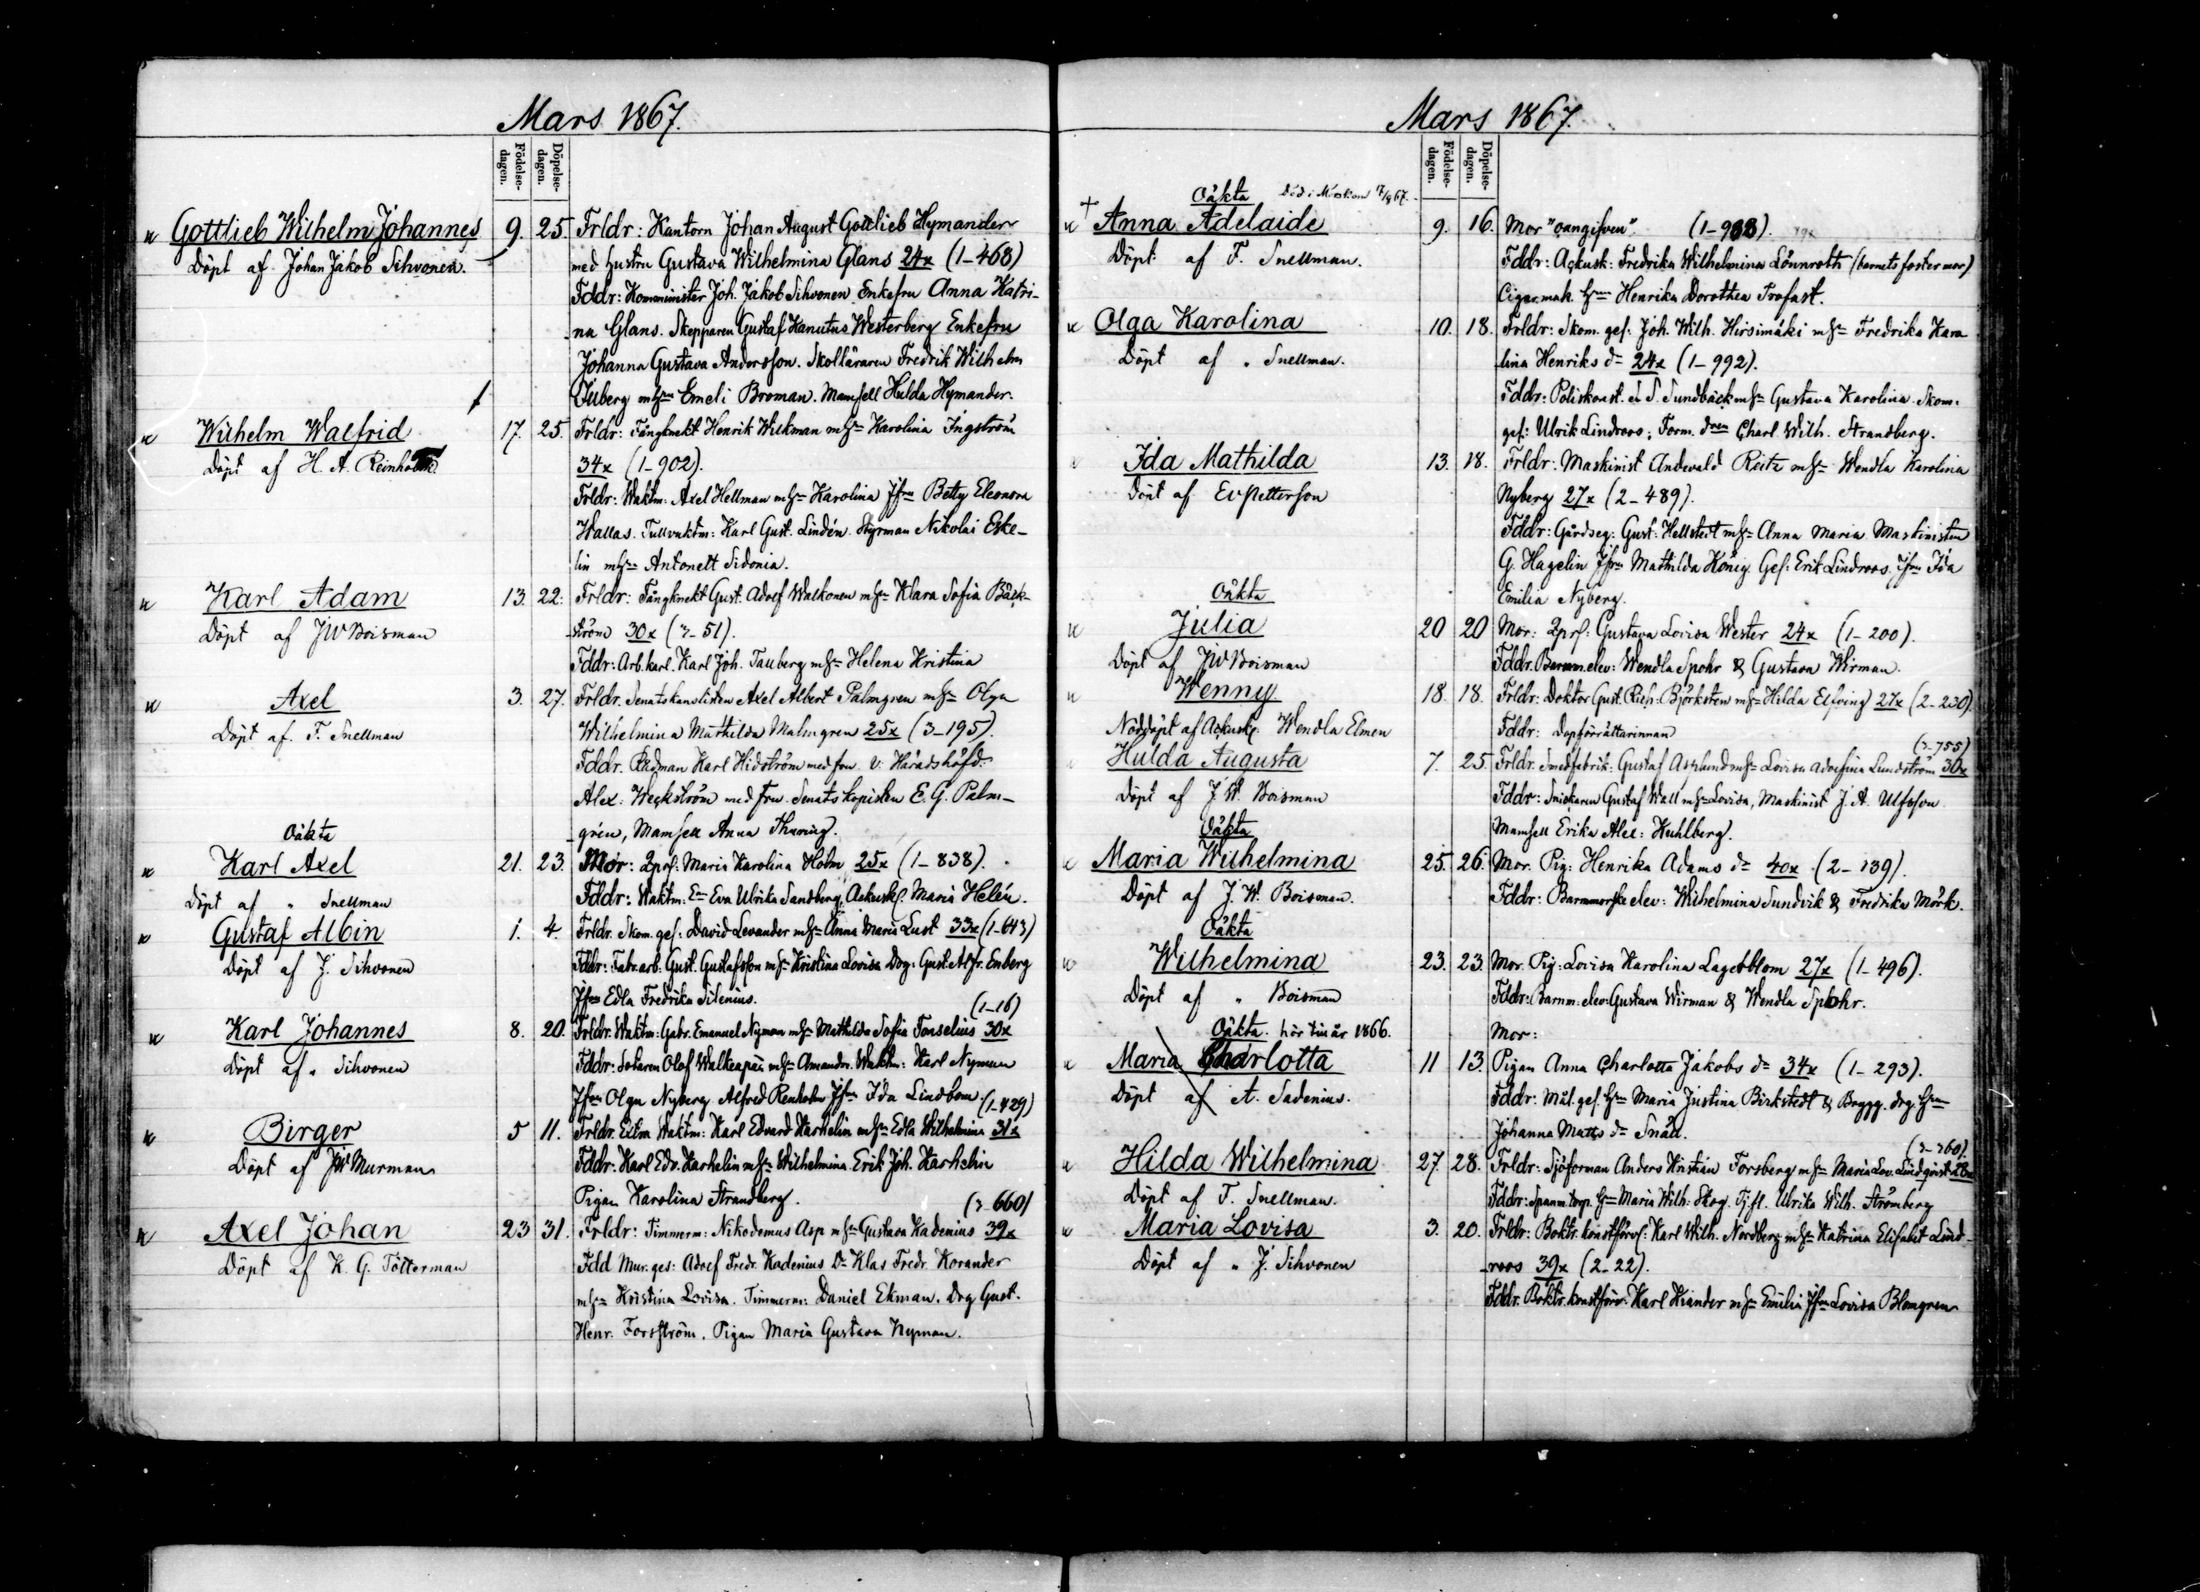 Mars 1867.
Födelse-dagen.
Döpelse-dagen.
Gottlieb Wilhelm Johannes 9. 25. Frldr: Kantorn Johan August Gottlieb Hymander
Döpt af Johan Jakob Sihvonen. med hustru Gustava Wilhelmina Glans 24x (1-468)
Fddr: Komminister Joh. Jakob Sihvonen. Enkefru Anna Katri-
na Glans. Skepparen Gustaf Kanutus Westerberg Enkefru
Johanna Gustava Andersson. Skolläraren Fredrik Wilhelm
Juberg mhu Emeli Broman. Mamsell Hulda Hymander.
Wilhelm Walfrid 17. 25. Frldr: Fångknekt Henrik Wilkman mhu Karolina Ingström
Döpt af H. A. 34x (1-902).
Frldr: Waktm: Axel Hellman mhu Karolina Jfru Betty Eleonora
Wallas. Tullvaktm: Karl Gust. Lindén. Styrman Nikolai Eske-
lin mhu Antonett Sidonia.
Karl Adam 13. 22. Frldr: Fångknekt Gust. Adolf Walkonen mhu Klara Sofia Bäck-
Döpt af JWBoisman ström 30x (3-51).
Fddr: Arb.karl. Karl Joh. Tauberg mhu Helena Kristina
Axel 3. 27. Frldr. Senatskanslisten Axel Albert Palmgren mhu Olga
Döpt af. F. Snellman Wilhelmina Mathilda Malmgren 25x (3-195).
Fddr. Rådman Karl Hidström med fru. V: Häradshöfd:
Alex: Weckström med fru. Senatskopisten E. G. Palm-
grén, Mamsell Anna Thuring.
Oäkta
Karl Axel 21. 23. Mor: 2prf: Maria Karolina Holm 25x (1-838).
Döpt af " Snellman Fddr: Waktm: Eva Ulrika Sandberg, Ackusk. Maria Helén.
Gustaf Albin 1. 4. Frldr. Skom. ges: David Levander mhu Anna Maria Lust 33x (1-643)
Döpt af J. Sihvonen Fddr: Fabr.arb. Gust. Gustafsson mhu Kristina Lovisa Drg: Gust. Alfr. Enberg
Jfru Edla Fredrika Silenius. (1-16)
Karl Johannes 8. 20. Frldr. Waktm: Gabr. Emanuel Nyman mhu Mathilda Sofia Fonselius 30x
Döpt af " Sihvonen Fddr: Olof Walkeapää mhu Amanda. Waktm: Karl Nyman
Jfru Olga Nyberg Alfred Renholm Jfru Ida Lindbom. (1-429)
Birger 5 11. Frldr. Waktm: Karl Edvard Karhelin mhu Edla Wilhelmina 31x
Döpt af JW Murman Fddr: Karl Edv. Karhelin mhu Wilhelmina. Erik Joh. Karhelin
Pigan Karolina Strandberg. (3-660)
Axel Johan 23 31. Frldr: Timmerm: Nikodemus Asp mhu Gustava Kadenius 39x
Döpt af K. G. Tötterman Fdd Mur.ges: Adolf Fredr. Kadenius Do Klas Fredr. Korander
mhu Kristina Lovisa. Timmerm: Daniel Ekman. Drg Gust.
Henr. Forsström. Pigan Maria Gustava Nyman.
Mars 1867.
Födelse-dagen.
Döpelse-dagen.
Oäkta Död i 7/8 67.
Anna Adelaide 9. 16. Mor "oangifven" (1-988).
Döpt af F. Snellman. Fddr: Ackusk: Fredrika Wilhelmina Lönnroth (barnets fostermor)
Cigar.mak. hru Henrika Dorothea Trofast.
Olga Karolina 10. 18. Frldr: Skom. ges. Joh. Wilh. Hirsimäki mhu Fredrika Karo
Döpt af " Snellman. lina Henriks dr 24x (1-992).
Fddr: Poliskonst. S. Sundbäck mhu Gustava Karolina. Skom.
ges: Ulrik Lindroos; Form. Charl. Wilh. Strandberg.
Ida Mathilda 13. 18. Frldr: Maskinist Andevald Reitz mhu Wendla Karolina
Döpt af Nyberg 27x (2-489).
Fddr: Gårdseg: Gust: Hellstedt mhu Anna Maria. Maskinisten
G. Hagelin Jfru Mathilda König Ges: Erik Lindroos. Jfru Ida
Emilia Nyberg.
Oäkta
Julia 20 20 Mor: 2prf: Gustava Lovisa Wester 24x (1-200).
Döpt af JWBoisman Fddr. Barnm.elev: Wendla Spohr & Gustava Wirman.
Wenny 18. 18. Frldr: Doktor Gust. Rich. Björksten mhu Hilda Elfving 27x (2-230)
Nöddöpt af Ackusk: Wendla Elmen Fddr: Dopförrättarinnan
(3-755)
Hulda Augusta 7. 25. Frldr. Smedfabrik: Gustaf Asplund mhu Lovisa Adolfina Lundström 30x
Döpt af J. W. Boisman Fddr: Snickaren Gustaf Wall mhu Lovisa, Maskinist J. A. Ulfsson
Mamsell Erika Alex: Kuhlberg.
Oäkta
Maria Wilhelmina 25. 26. Mor. Pig: Henrika Adams dr 40x (2-139).
Döpt af J. W. Boisman. Fddr: Barnmorske elev: Wilhelmina Sundvik & Fredrika Mörk.
Oäkta
Wilhelmina 23. 23. Mor. Pig: Lovisa Karolina Lagerblom 27x (1-496).
Döpt af " Boisman Fddr: Barnm: elev: Gustava Wirman & Wendla Spohr.
Oäkta. hör till år 1866. Mor:
Maria Charlotta 11 13. Pigan Anna Charlotta Jakobs dr 34x (1-293).
Döpt af A. Sadenius. Fddr: Mål. ges. hru Maria Justina Birkstedt & Brygg. drg. hru
Johanna Matts dr Snäll.
(3-760).
Hilda Wilhelmina 27. 28. Frldr: Sjöforman Anders Kristian Forsberg mhu Maria Lov. Lindqvist 28x
Döpt af F. Snellman. Fddr: hru Maria Wilh: Skog. Tj.fl. Ulrika Wilh. Strömberg
Maria Lovisa 3. 20. Frldr: Boktr. konstförv: Karl Wilh. Nordberg mhu Katrina Elisabet Lind-
Döpt af " J. Sihvonen roos 39x (2-22).
Fddr. Boktr. konstförv. Karl Kiander mhu Emilia Jfru Lovisa Blomgren